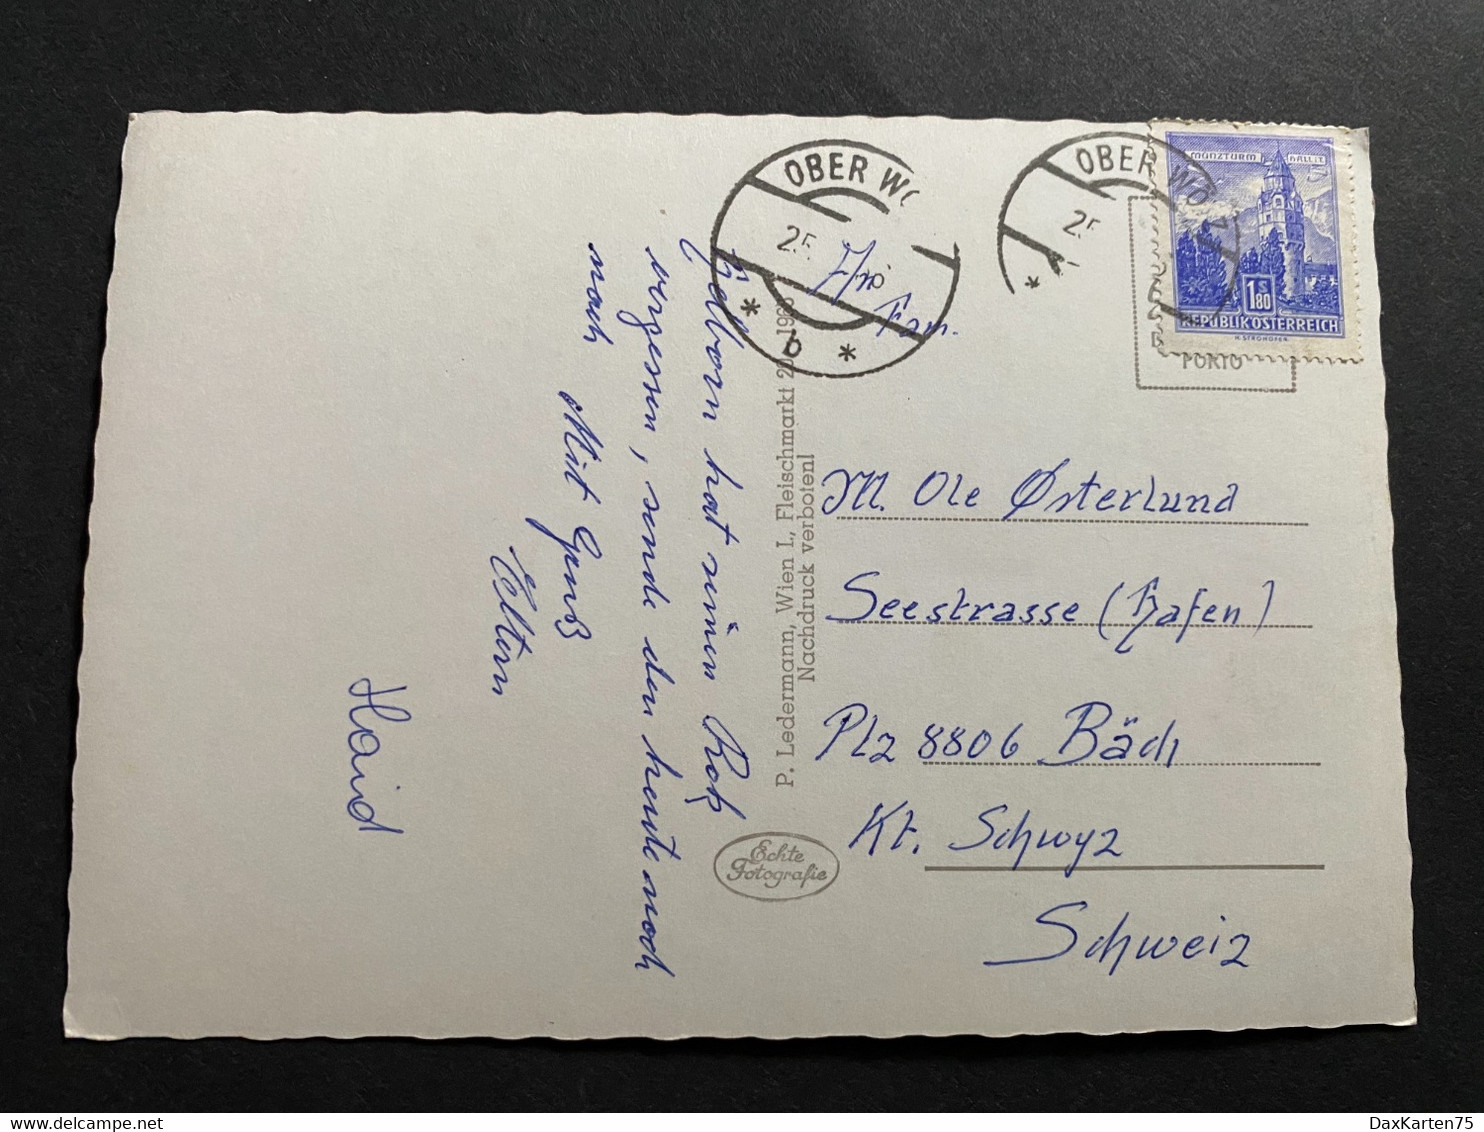 OBER WO
25
b
OBER WÖLZ
25
MÜNZTURM HALL i. T.
S
1.80
REPUBLIK ÖSTERREICH
H. STROHOFER
PORTO
Fam.
M. Ole Østerlund
Seestrasse (Hafen)
Plz 8806 Bäch
Kt. Schwyz
Schweiz
P. Ledermann, Wien I., Fleischmarkt 20
Nachdruck verboten!
Echte
Fotografie
hat
vergessen, sende den heute noch
nach
Mit Gruß
Eltern
Haid
DaxKarten75